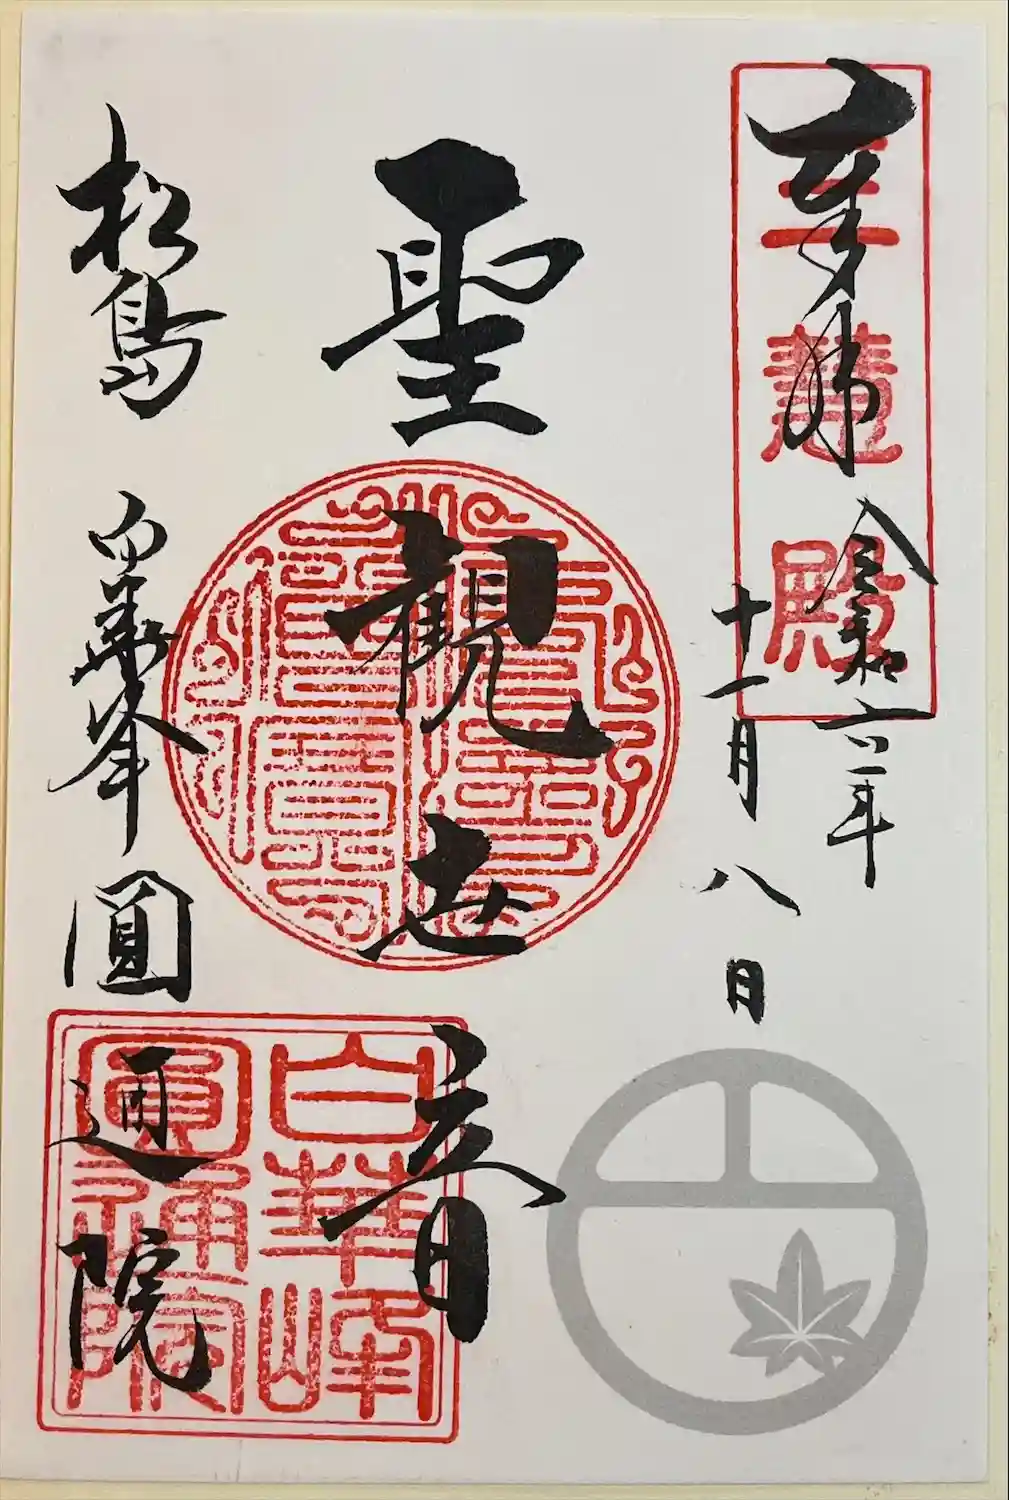 奉拝
三慧殿
令和六年
十一月八日
聖観世音
松島
白華峰
圓通院
白華峰
圓通院